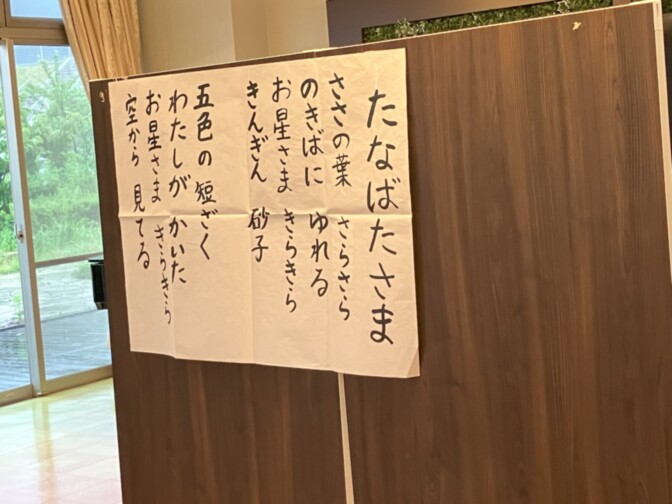 たなばたさま
ささの葉 さらさら
のきばに ゆれる
お星さま きらきら
きんぎん 砂子
五色の 短ざく
わたしが かいた
お星さま きらきら
空から 見てる